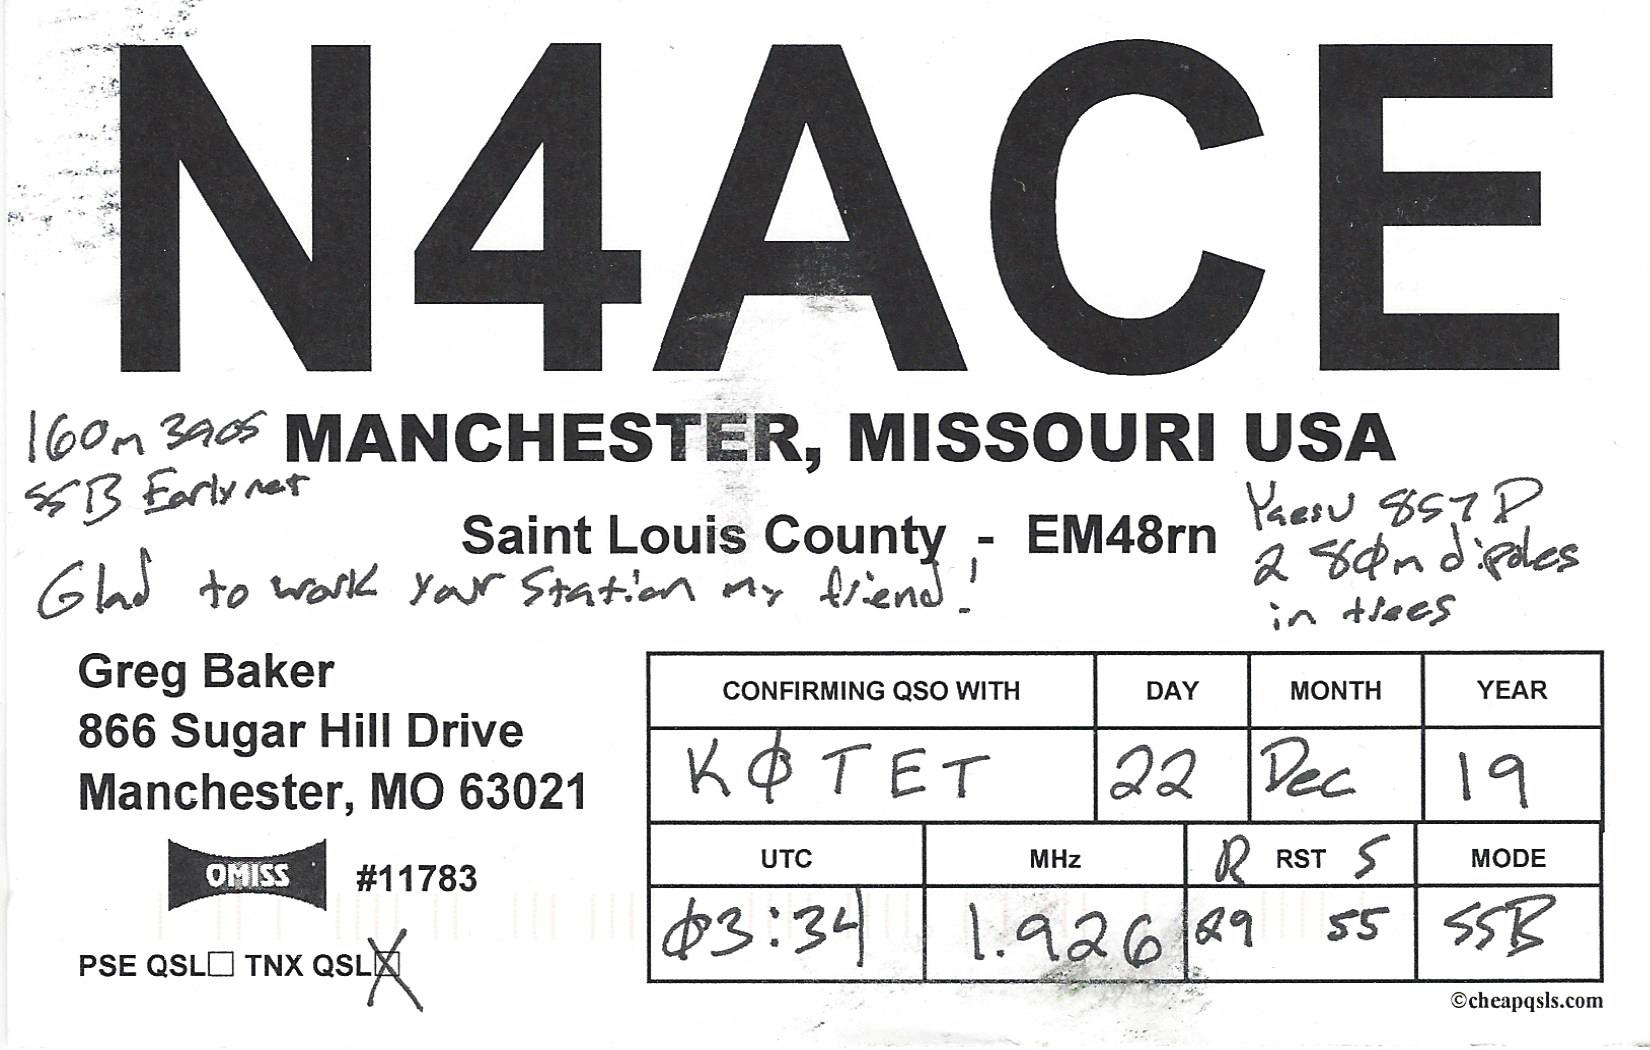 N4ACE
MANCHESTER, MISSOURI USA
160m 3905
SSB Early net
Saint Louis County - EM48rn
Yaesu 857D
2 80m dipoles
in trees
Glad to work your station my friend!
Greg Baker
866 Sugar Hill Drive
Manchester, MO 63021
OMISS #11783
PSE QSL☐ TNX QSL☒
CONFIRMING QSO WITH DAY MONTH YEAR
KØTET 22 Dec 19
UTC MHz R RST S MODE
Ø3:34 1.926 29 55 SSB
©cheapqsls.com